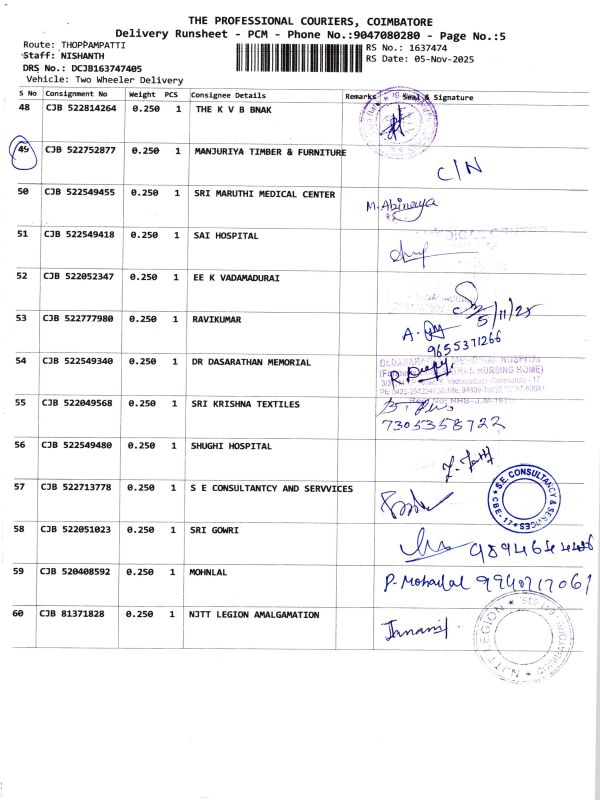 THE PROFESSIONAL COURIERS, COIMBATORE
Delivery Runsheet - PCM - Phone No.:9047080280 - Page No.:5
Route: THOPPAMPATTI
RS No.: 1637474
Staff: NISHANTH
RS Date: 05-Nov-2025
DRS No.: DCJB163747405
Vehicle: Two Wheeler Delivery
S No Consignment No Weight PCS Consignee Details Remarks Seal & Signature
48 CJB 522814264 0.250 1 THE K V B BNAK
49 CJB 522752877 0.250 1 MANJURIYA TIMBER & FURNITURE
C/N
50 CJB 522549455 0.250 1 SRI MARUTHI MEDICAL CENTER
M. Abinaya
51 CJB 522549418 0.250 1 SAI HOSPITAL
52 CJB 522052347 0.250 1 EE K VADAMADURAI
5/11/25
53 CJB 522777980 0.250 1 RAVIKUMAR
9655371266
54 CJB 522549340 0.250 1 DR DASARATHAN MEMORIAL
55 CJB 522049568 0.250 1 SRI KRISHNA TEXTILES
7305358722
56 CJB 522549480 0.250 1 SHUGHI HOSPITAL
57 CJB 522713778 0.250 1 S E CONSULTANTCY AND SERVVICES
S.E. CONSULTANCY & SERVICES
CBE-17
58 CJB 522051023 0.250 1 SRI GOWRI
59 CJB 520408592 0.250 1 MOHNLAL
P. Mohanlal 9940717061
60 CJB 81371828 0.250 1 NJTT LEGION AMALGAMATION
Janani
NJTT LEGION